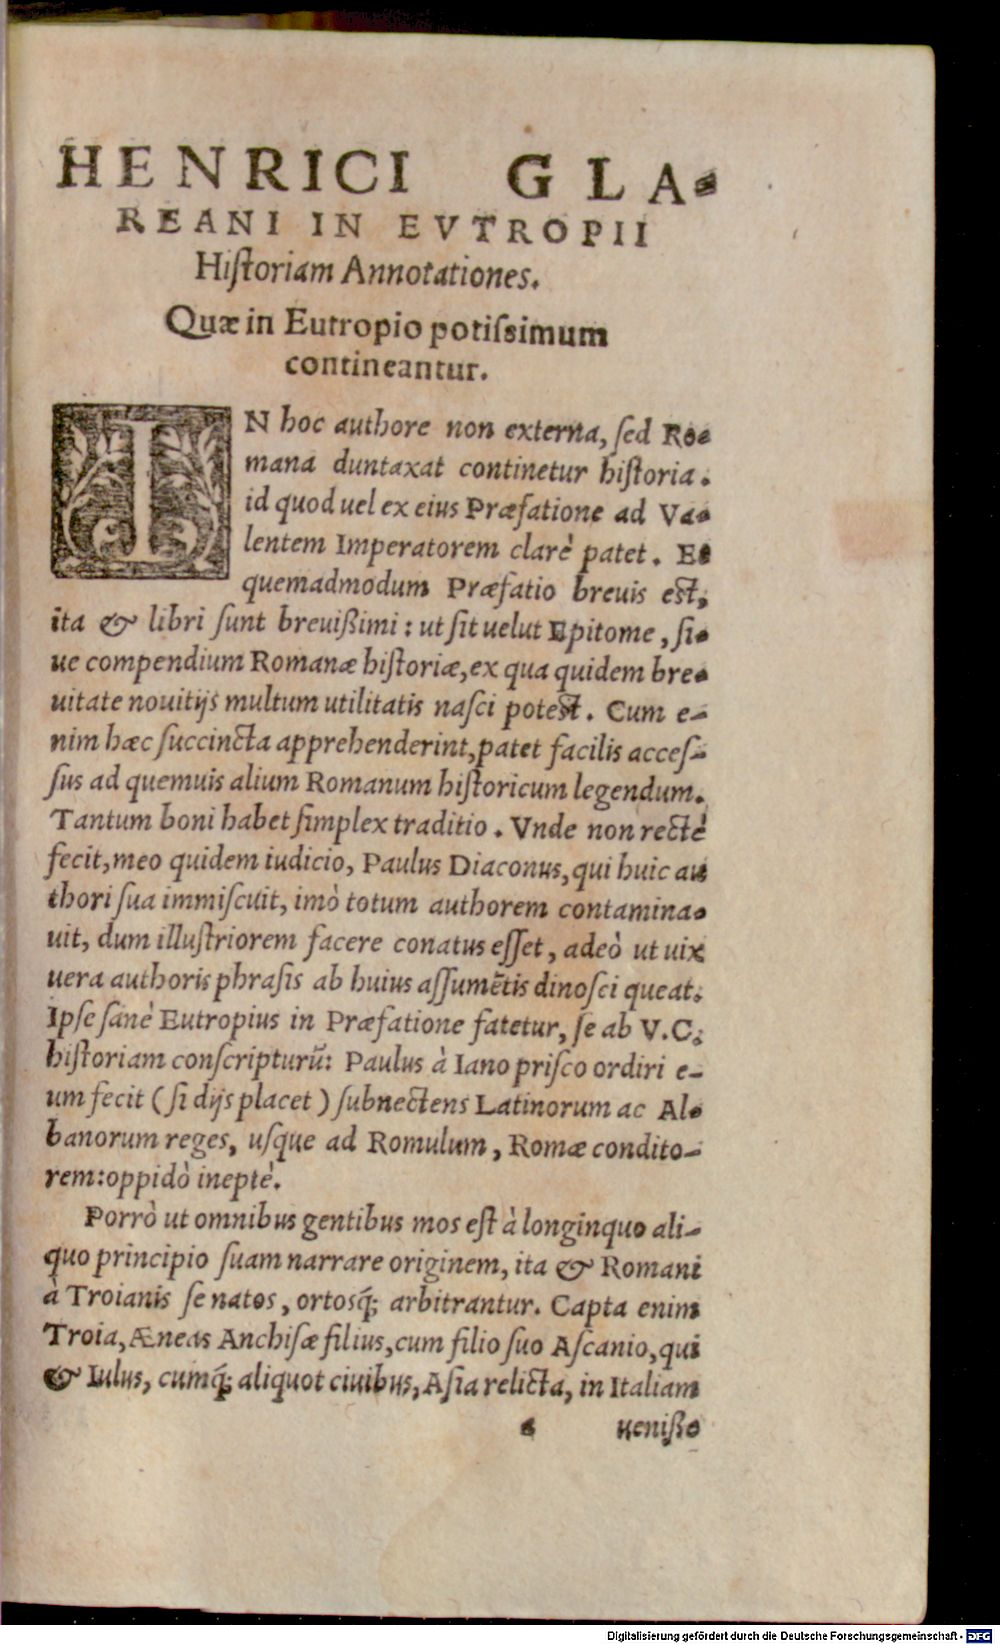 HENRICI GLA-
REANI IN EVTROPII
Hiſtoriam Annotationes.
Quæ in Eutropio potiſsimum
contineantur.
IN hoc authore non externa, ſed Ro-
mana duntaxat continetur hiſtoria.
id quod uel ex eius Præfatione ad Va-
lentem Imperatorem clarè patet. Et
quemadmodum Præfatio breuis eſt,
ita & libri ſunt breuißimi: ut ſit uelut Epitome, ſi-
ue compendium Romanæ hiſtoriæ, ex qua quidem bre-
uitate nouitijs multum utilitatis naſci poteſt. Cum e-
nim hæc ſuccincta apprehenderint, patet facilis acceſ-
ſus ad quemuis alium Romanum hiſtoricum legendum.
Tantum boni habet ſimplex traditio. Vnde non rectè
fecit, meo quidem iudicio, Paulus Diaconus, qui huic au
thori ſua immiſcuit, imò totum authorem contamina-
uit, dum illuſtriorem facere conatus eſſet, adeò ut uix
uera authoris phraſis ab huius aſſumẽtis dinoſci queat.
Ipſe ſanè Eutropius in Præfatione fatetur, ſe ab V.C.
hiſtoriam conſcripturũ: Paulus à Iano priſco ordiri e-
um fecit (ſi dijs placet) ſubnectens Latinorum ac Al-
banorum reges, uſque ad Romulum, Romæ condito-
rem: oppidò ineptè.
Porrò ut omnibus gentibus mos eſt à longinquo ali-
quo principio ſuam narrare originem, ita & Romani
à Troianis ſe natos, ortosq́; arbitrantur. Capta enim
Troia, Æneas Anchiſæ filius, cum filio ſuo Aſcanio, qui
& Iulus, cumq́; aliquot ciuibus, Aſia relicta, in Italiam
a ueniße
Digitalisierung gefördert durch die Deutsche Forschungsgemeinschaft - DFG